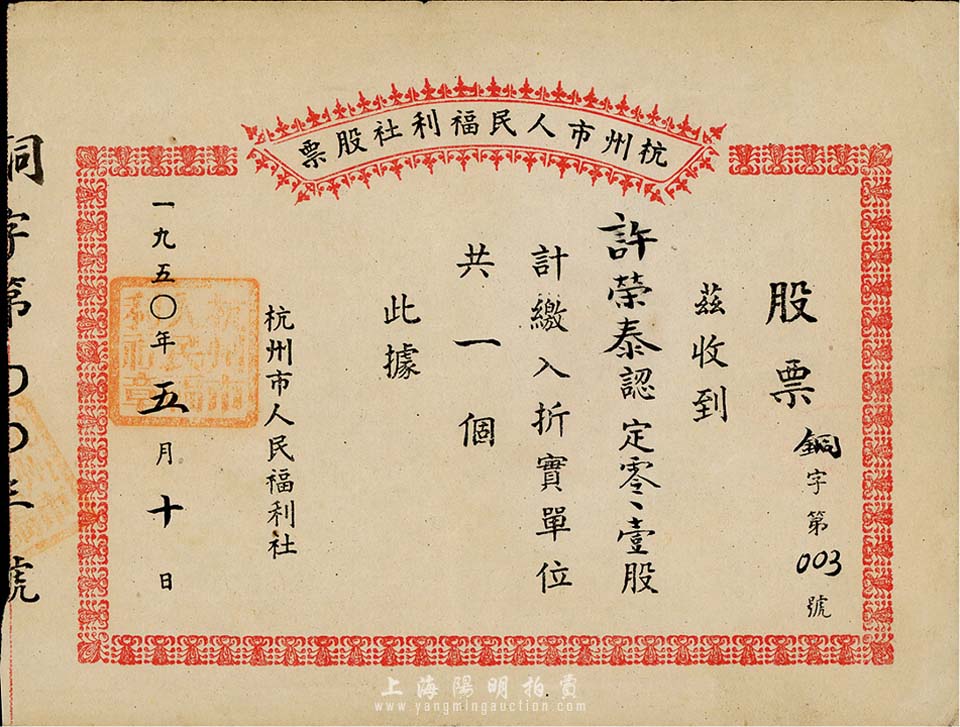 杭州市人民福利社股票
股票
銅字第003號
茲收到
許榮泰認定零、壹股
計繳入折實單位
共一個
此據
杭州市人民福利社
一九五〇年五月十日
銅字第〇〇三號
上海陽明拍賣
www.yangmingauction.com